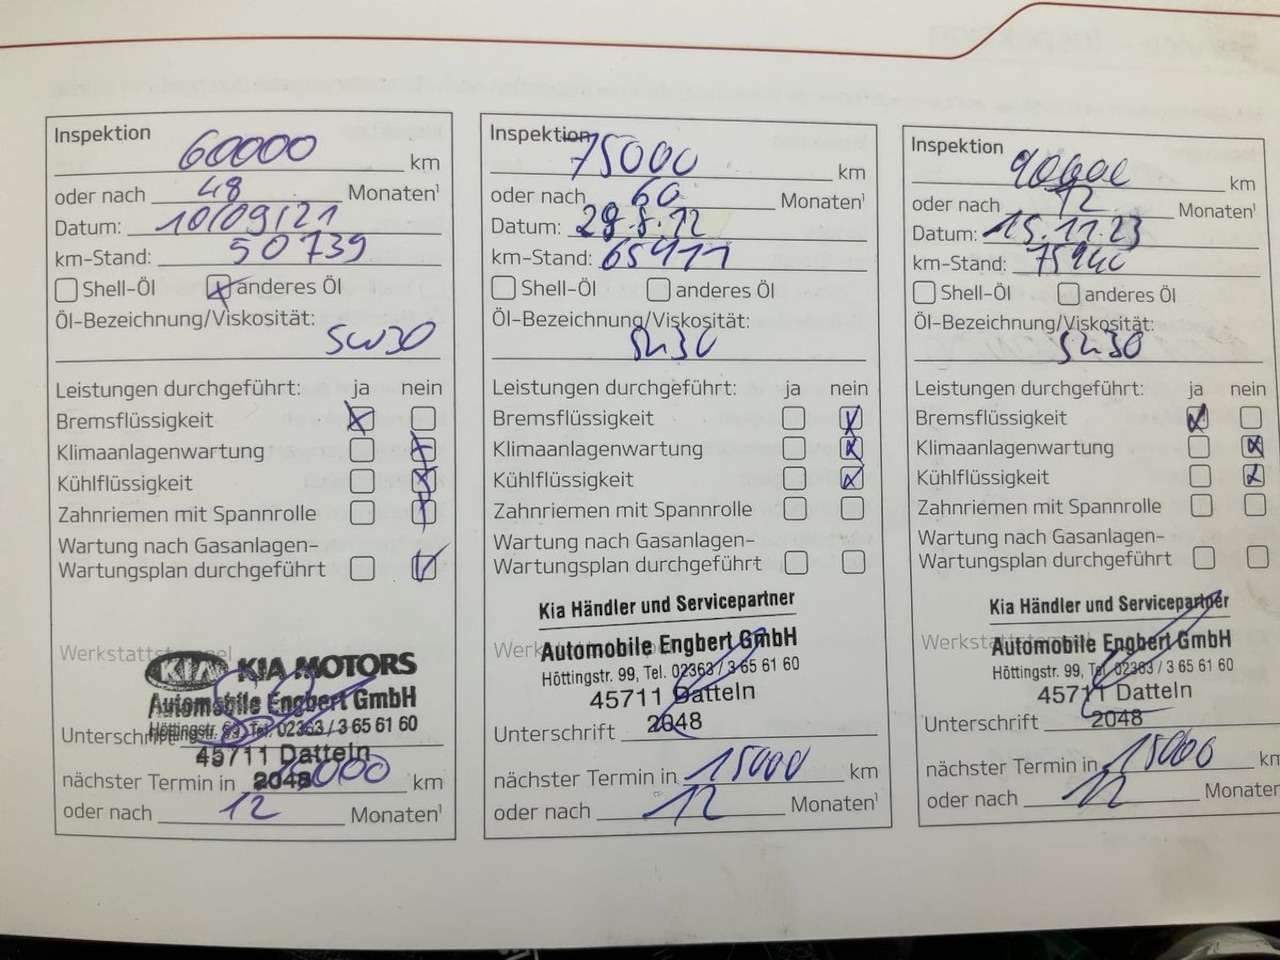 Inspektion
60000 km
oder nach 48 Monaten¹
Datum: 10/09/21
km-Stand: 50739
Shell-Öl anderes Öl
Öl-Bezeichnung/Viskosität:
5W30
Leistungen durchgeführt: ja nein
Bremsflüssigkeit
Klimaanlagenwartung
Kühlflüssigkeit
Zahnriemen mit Spannrolle
Wartung nach Gasanlagen-
Wartungsplan durchgeführt
Werkstattstempel
KIA KIA MOTORS
Automobile Engbert GmbH
Höttingstr. 99, Tel. 02363 / 3 65 61 60
Unterschrift
45711 Datteln
2048
nächster Termin in km
oder nach 12 Monaten¹
Inspektion
75000 km
oder nach 60 Monaten¹
Datum: 29.8.12
km-Stand: 65411
Shell-Öl anderes Öl
Öl-Bezeichnung/Viskosität:
5W30
Leistungen durchgeführt: ja nein
Bremsflüssigkeit
Klimaanlagenwartung
Kühlflüssigkeit
Zahnriemen mit Spannrolle
Wartung nach Gasanlagen-
Wartungsplan durchgeführt
Kia Händler und Servicepartner
Automobile Engbert GmbH
Höttingstr. 99, Tel. 02363 / 3 65 61 60
45711 Datteln
2048
Unterschrift
nächster Termin in 15000 km
oder nach 12 Monaten¹
Inspektion
90000 km
oder nach 72 Monaten¹
Datum: 15.11.23
km-Stand:
Shell-Öl anderes Öl
Öl-Bezeichnung/Viskosität:
5W30
Leistungen durchgeführt: ja nein
Bremsflüssigkeit
Klimaanlagenwartung
Kühlflüssigkeit
Zahnriemen mit Spannrolle
Wartung nach Gasanlagen-
Wartungsplan durchgeführt
Kia Händler und Servicepartner
Werkstattstempel
Automobile Engbert GmbH
Höttingstr. 99, Tel. 02363 / 3 65 61 60
45711 Datteln
2048
Unterschrift
nächster Termin in 15000 km
oder nach 12 Monaten